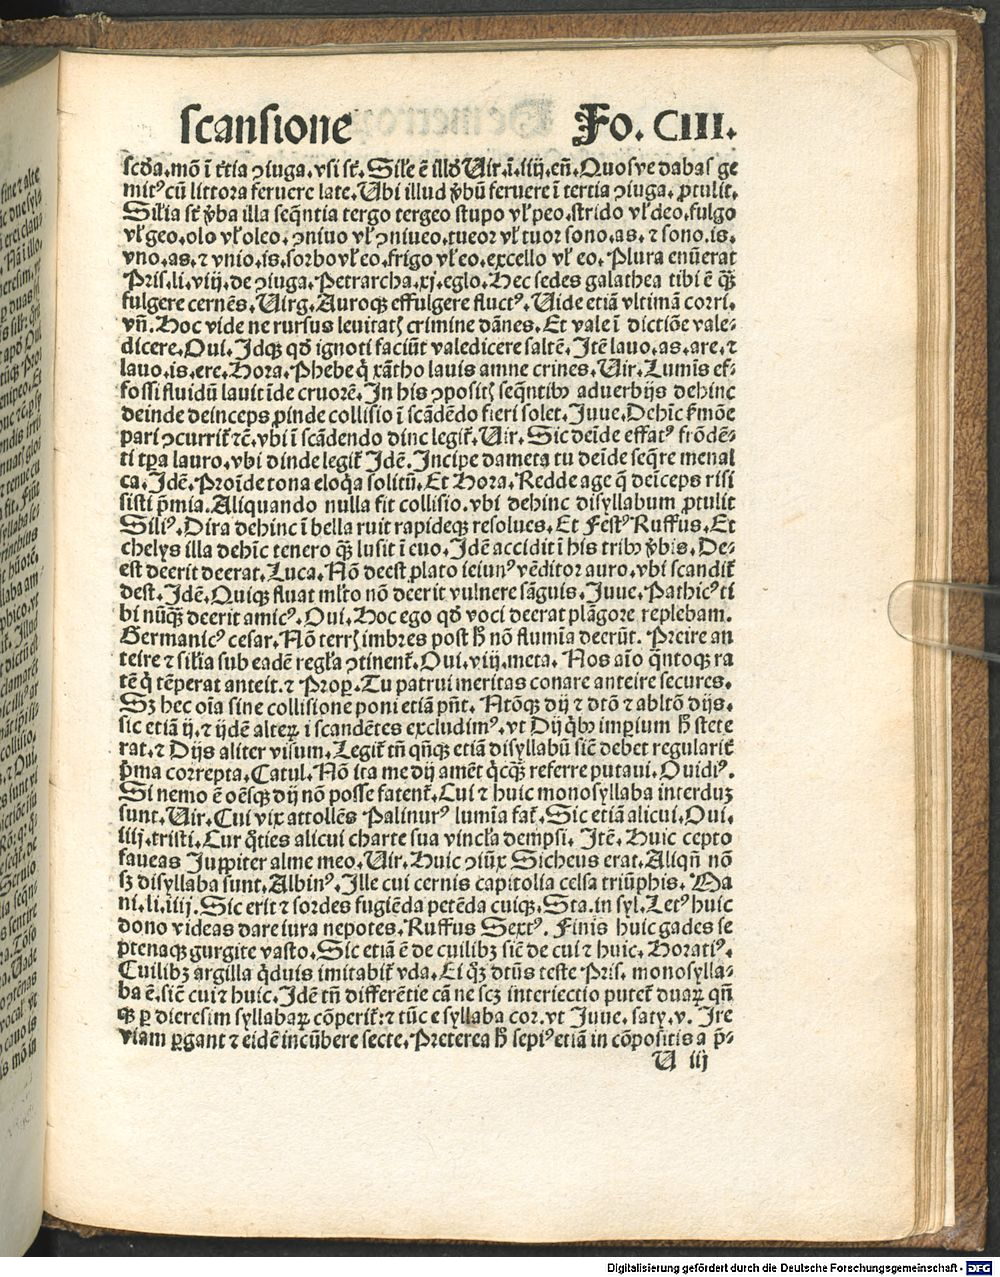 scansione Fo. CIII.
scd̄a.mō ī t̄tia ꝯiuga.vsi st̄. Sil'e ē illd̄ Uir.ī.iiij.en̄. Quosve dabas ge
mitꝰ cū littora feruere late. Ubi illud v̄bū feruere ī tertia ꝯiuga. ꝓtulit.
Silīa st̄ v̄ba illa seqn̄tia tergo tergeo stupo vl̓ peo. strido vl̓ deo. fulgo
vl̓ geo. olo vl̓ oleo. ꝯniuo vl̓ ꝯniueo. tueor vl̓ tuor sono. as. ⁊ sono. is.
vno. as. ⁊ vnio. is. sorbo vl̓ eo. frigo vl̓ eo. excello vl̓ eo. Plura enūerat
Pris. li. viij. de ꝯiuga. Petrarcha. xj. eglo. Hec sedes galathea tibi ē qȝ̄
fulgere cernēs. Uirg. Auroqȝ effulgere fluctꝰ. Uide etiā vltimā corri.
vn̄. Hoc vide ne rursus leuitatꝭ crimine dānes. Et vale ī dictiōe vale-
dicere. Oui. Idqȝ qd̄ ignoti faciūt valedicere saltē. Itē lauo. as. are. ⁊
lauo. is. ere. Hora. Phebe q̇ xātho lauis amne crines. Uir. Lumīs ef-
fossi fluidū lauit īde cruorē. In his ꝯpositꝭ seqn̄tibꝰ aduerbijs dehinc
deinde deinceps ꝓinde collisio ī scādēdo fieri solet. Juue. Dehīc s̄mōe
pari ꝯcurrit̄ ⁊c̄. vbi ī scādendo dinc legit̄. Uir. Sic deīde effatꝰ frōdē-
ti tp̄a lauro. vbi dinde legit̄ Idē. Incipe dameta tu deīde seq̄re menal
ca. Idē. Proīde tona eloq̇a solitū. Et Hora. Redde age q̄ deīceps risi
sisti p̄mia. Aliquando nulla fit collisio. vbi dehinc disyllabum ꝓtulit
Siliꝰ. Dira dehinc ī bella ruit rapideqȝ resolues. Et Festꝰ Ruffus. Et
chelys illa dehīc tenero qȝ̄ lusit ī euo. Idē accidit ī his tribꝰ v̄bis. De-
est deerit deerat. Luca. Nō deest ꝓlato ieiunꝰ vēditor auro. vbi scandit̄
dest. Idē. Quiqȝ fluat ml̓to nō deerit vulnere sāguis. Juue. Pathicꝰ ti
bi nūqȝ̄ deerit amicꝰ. Oui. Hoc ego qd̄ voci deerat plāgore replebam.
Germanicꝰ cesar. Nō terrꝭ imbres post h̄ nō flumīa decrūt. Preire an
teire ⁊ sil̓ia sub eadē regl̓a ꝯtinent̄. Oui. viij. meta. Nos aīo q̄ntoqȝ ra
tē q̇ tēperat anteit. ⁊ Prop. Tu patrui meritas conare anteire secures.
Sȝ hec oīa sine collisione poni etiā pn̄t. Ntōqȝ dij ⁊ dtō ⁊ abltō dijs.
sic etiā ij. ⁊ ijdē alterꝝ i scandētes excludimꝰ. vt Dij q̇bꝰ imꝑium h̄ stete
rat. ⁊ Dijs aliter visum. Legit̄ tn̄ qn̄qȝ etiā disyllabū siē debet regularit̄
p̄ma correpta. Catul. Nō ita me dij amēt q̇cqȝ̄ referre putaui. Ouidiꝰ.
Si nemo ē oēsqȝ dij nō posse fatent̄. Cui ⁊ huic monosyllaba interduȝ
sunt. Uir. Cui vix attollēs Palinurꝰ lumīa fat̄. Sic etiā alicui. Oui.
iiij. tristi. Cur q̄ties alicui charte sua vincl̓a dempsi. Itē. Huic cepto
faueas Juppiter alme meo. Uir. Huic ꝯiūx Sicheus erat. Aliqn̄ nō
sȝ disyllaba sunt. Albinꝰ. Ille cui cernis capitolia celsa triūphis. Ma
ni. li. iiij. Sic erit ⁊ sordes fugiēda petēda cuiqȝ. Sta. in syl. Letꝰ huic
dono videas dare iura nepotes. Ruffus Sextꝰ. Finis huic gades se
ptenaqȝ gurgite vasto. Sic etiā ē de cuilibȝ siē de cui ⁊ huic. Horatiꝰ.
Cuilibȝ argilla q̇duis imitabit̄ vda. Ei qȝ̄ dtūs teste Pris. monosylla-
ba ē. siē cui ⁊ huic. Idē tn̄ differētie cā ne scȝ interiectio putet̄ duaꝝ qn̄
qȝ ꝑ dieresim syllabaꝝ cōperit̄: ⁊ tūc e syllaba cor. vt Juue. saty. v. Ire
viam ꝑgant ⁊ eidē incūbere secte. Preterea h̄ sepiꝰ etiā in cōpositis a p̄-
U iij
Digitalisierung gefördert durch die Deutsche Forschungsgemeinschaft - DFG